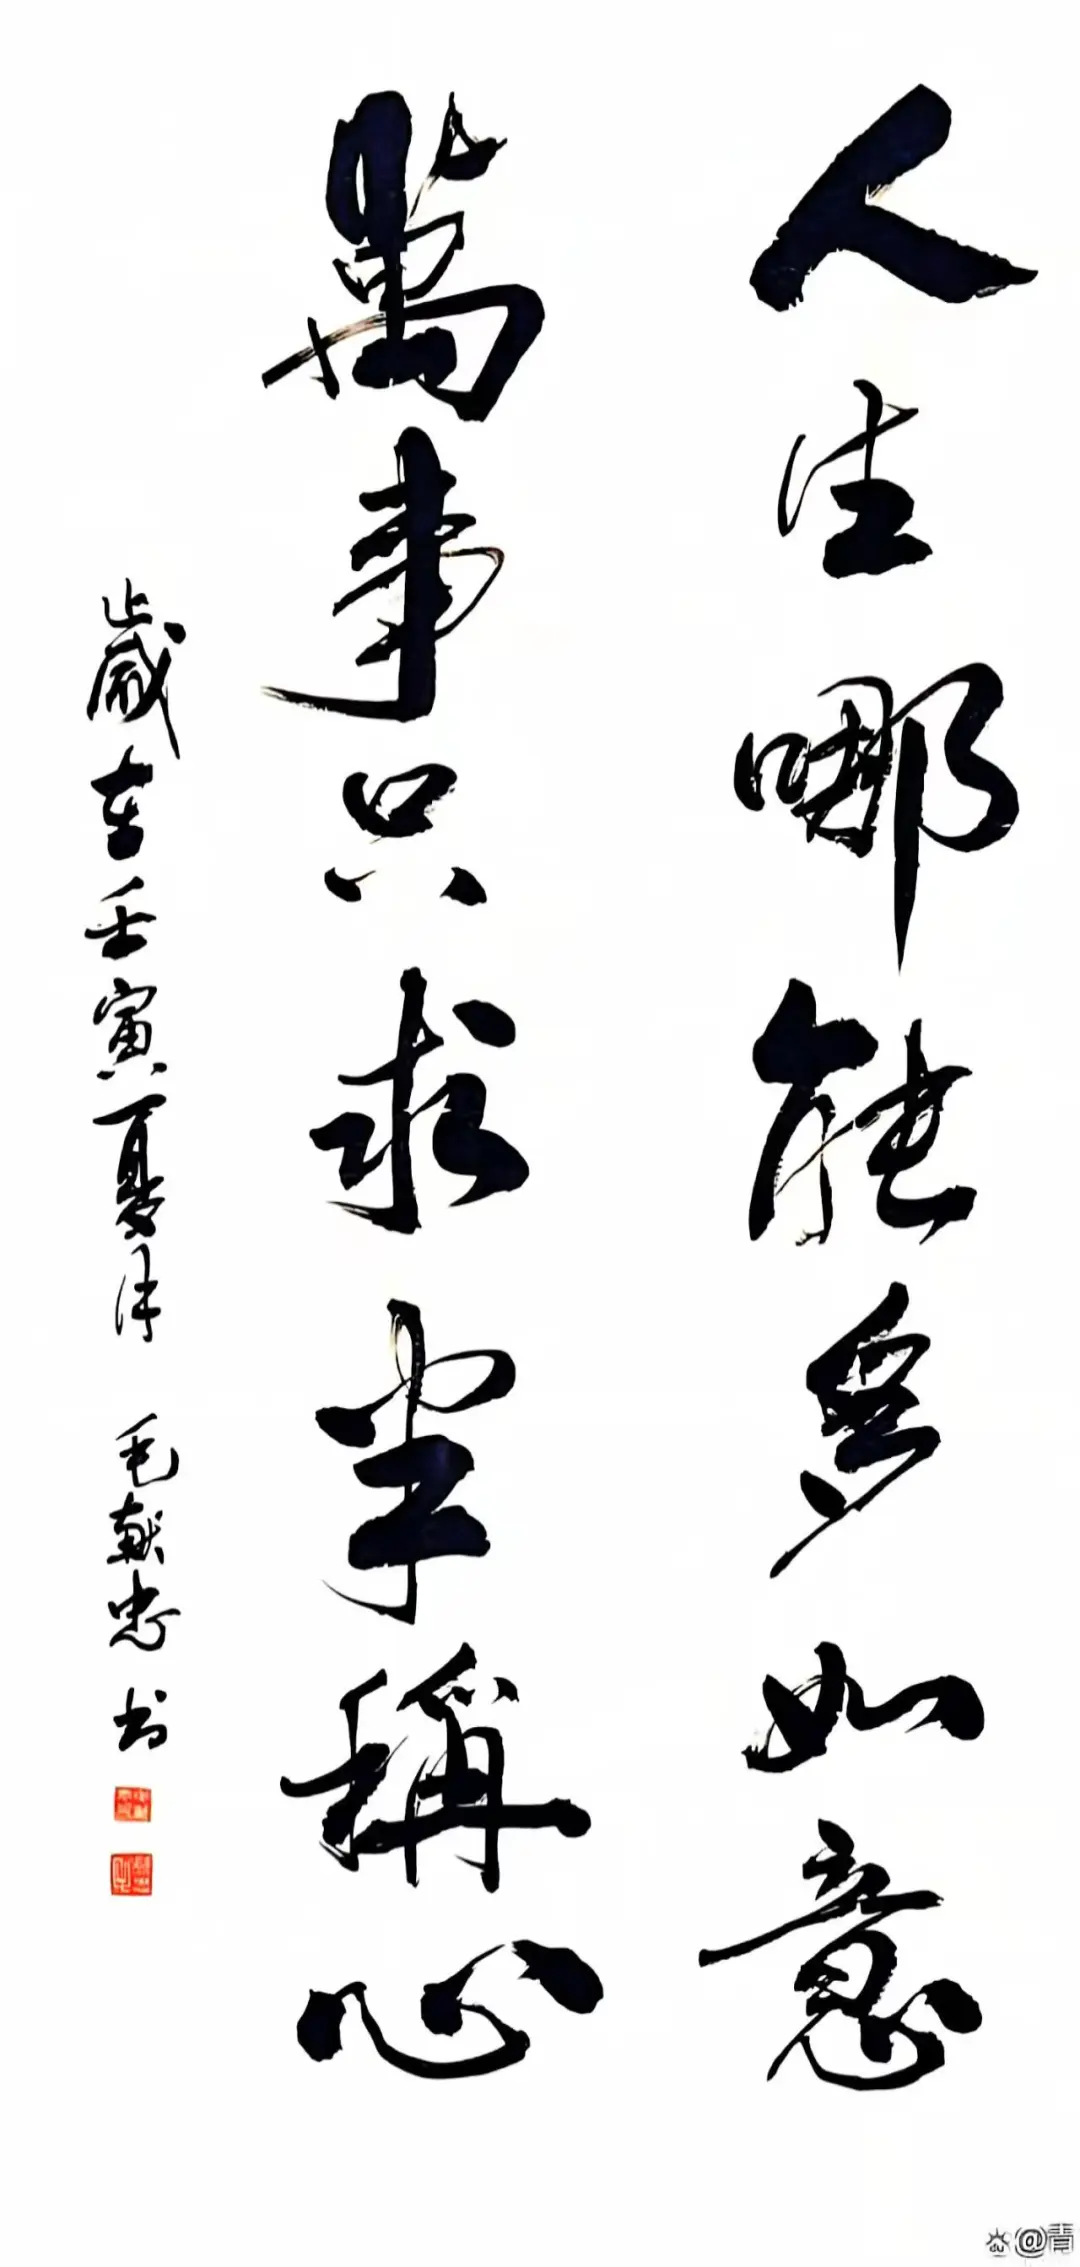 人生哪能多如意
萬事只求半稱心
歲在壬寅夏月 毛献忠书